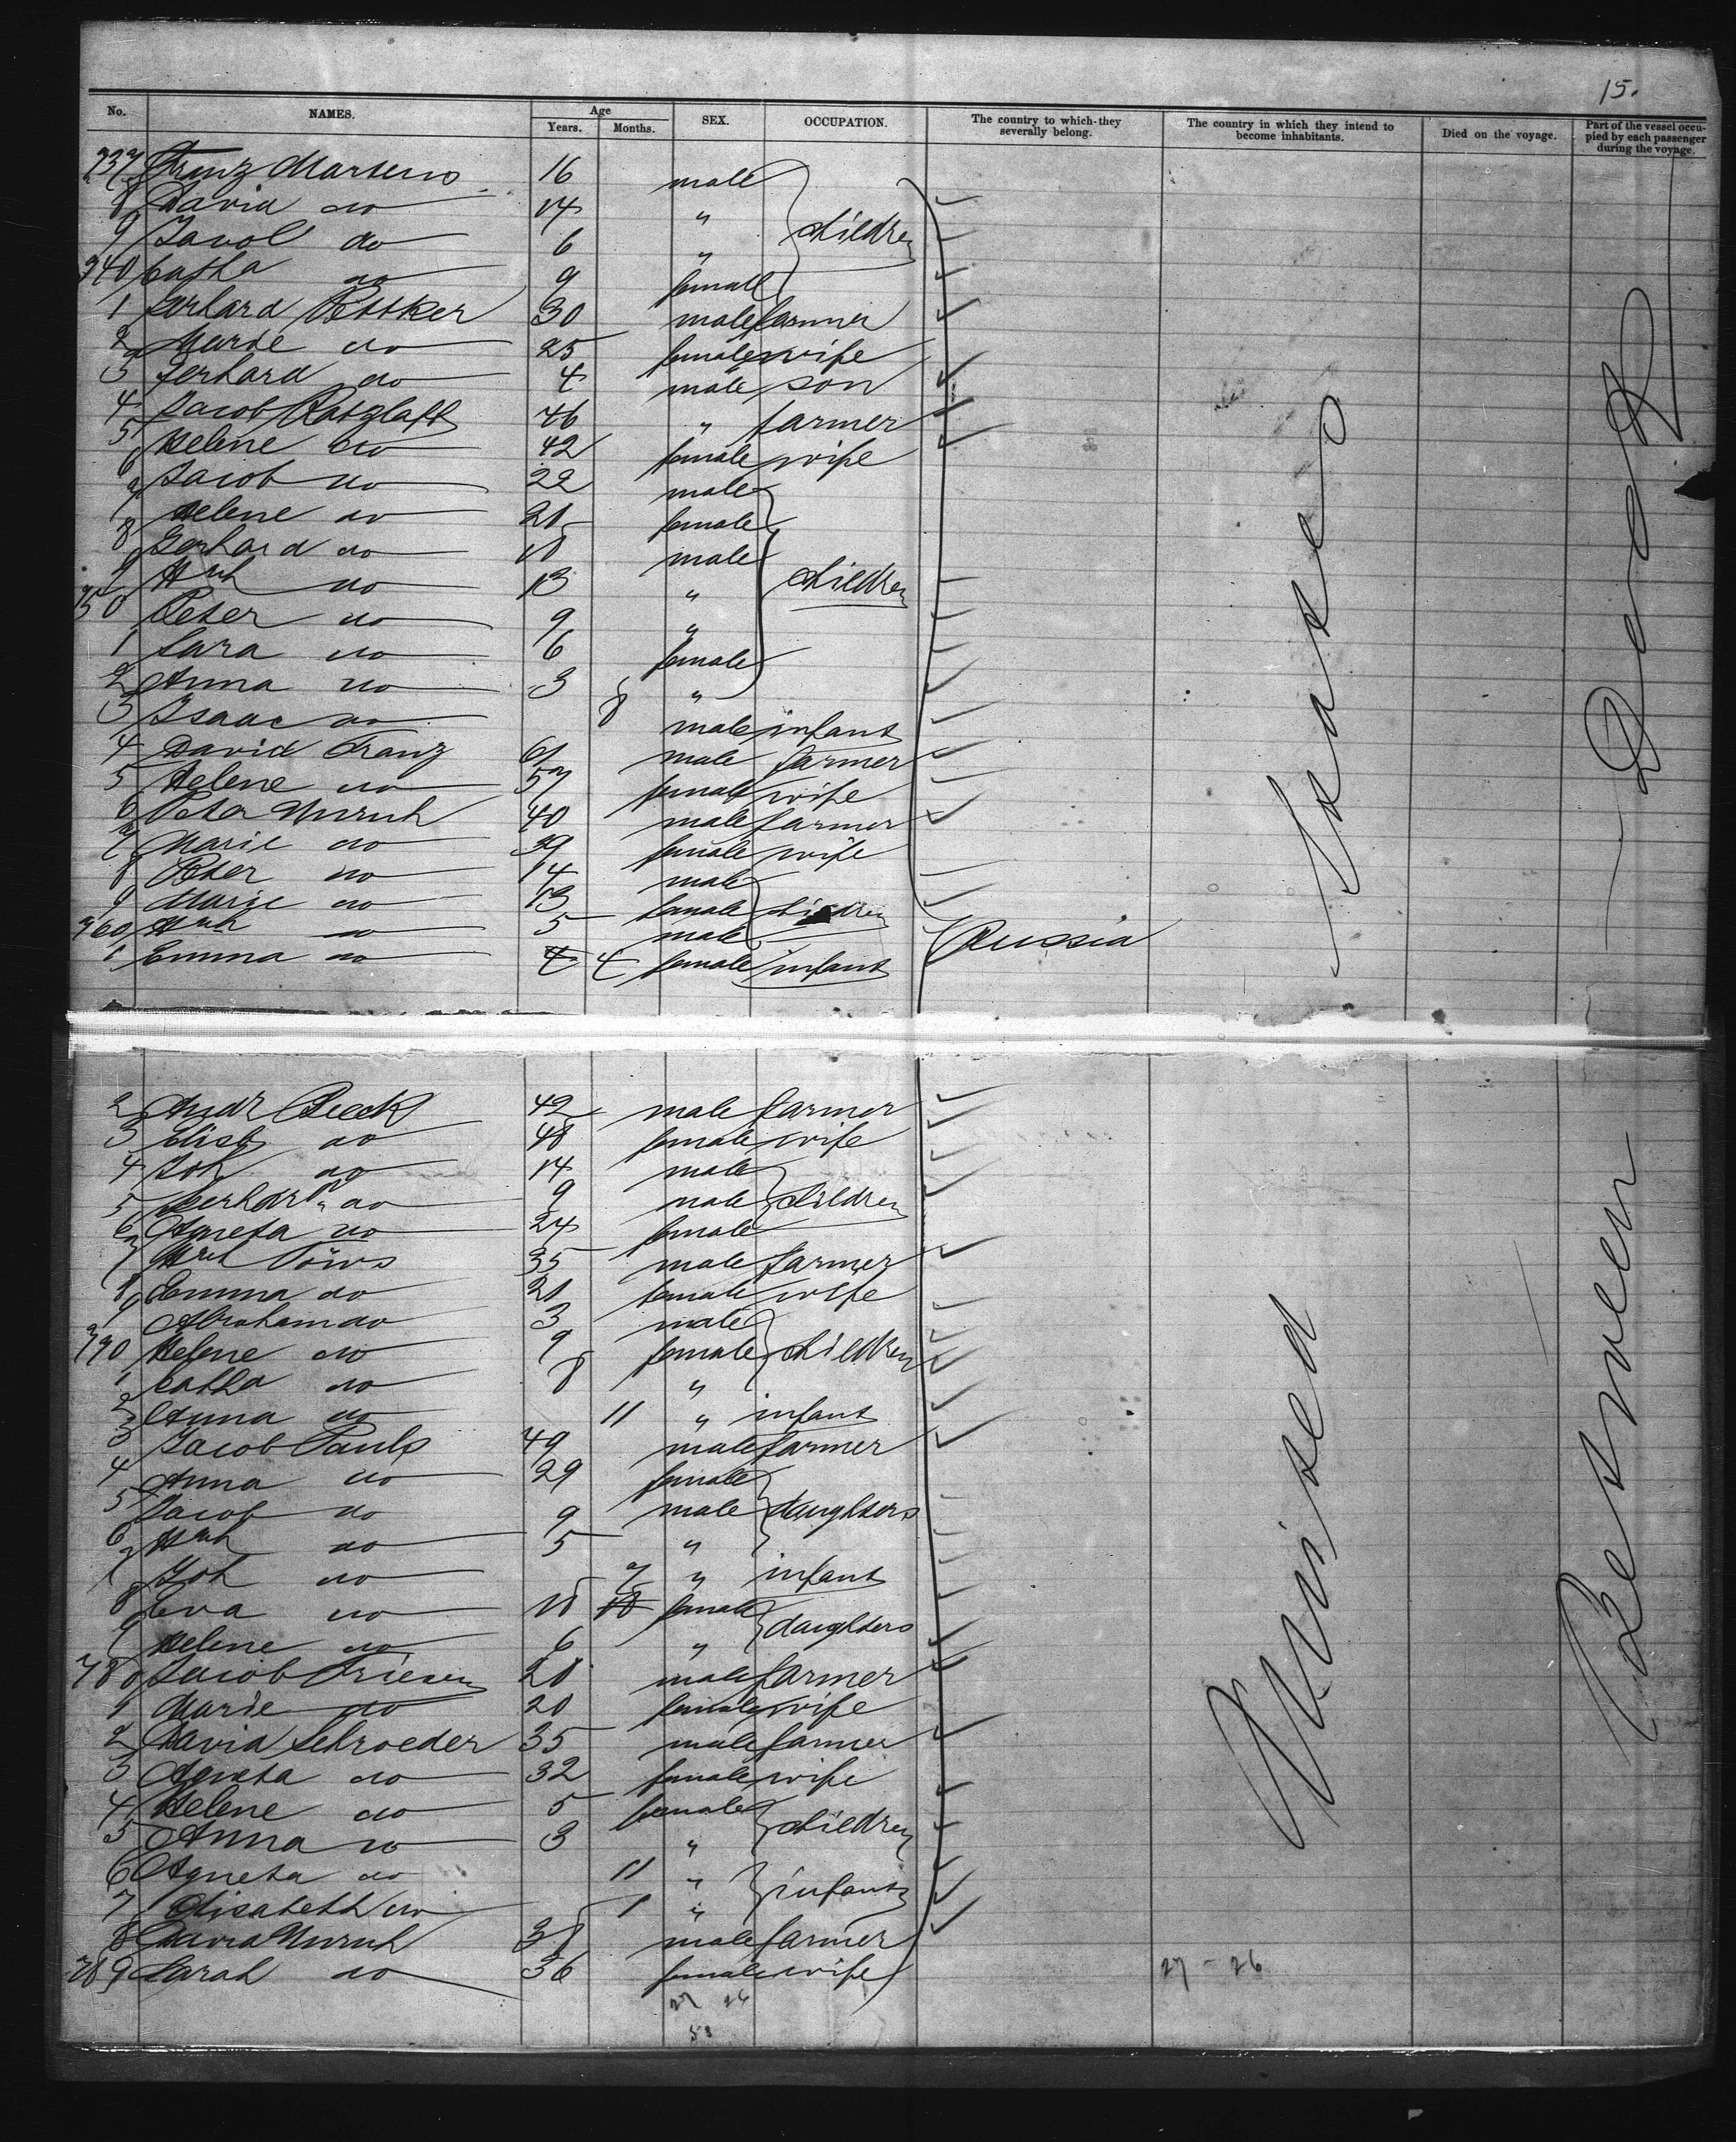 15.
No. NAMES. Age Years. Months. SEX. OCCUPATION. The country to which they severally belong. The country in which they intend to become inhabitants. Died on the voyage. Part of the vessel occupied by each passenger during the voyage.
737 Franz Martens 16 male
8 David do 14 "
9 Jacob do 6 " children
740 Catha do 9 female
1 Gerhard Pettker 30 male farmer
2 Marie do 25 female wife
3 Gerhard do 4 male son
4 Jacob Ratzlaff 46 " farmer
5 Helene do 42 female wife
6 Jacob do 22 male
7 Helene do 21 female
8 Gerhard do 18 male
9 Hrch do 13 " children
750 Peter do 9 "
1 Sara do 6 female
2 Anna do 3 "
3 Isaac do 8 male infant
4 David Franz 61 male farmer
5 Helene do 57 female wife
6 Peter Unruh 40 male farmer
7 Marie do 39 female wife
8 Peter do 14 male
9 Marie do 13 female children
760 Hrch do 5 male
1 Emma do 4 4 female infant
Russia
2 Andr Reeck 42 male farmer
3 Elisb do 48 female wife
4 Joh do 14 male
5 Gerhard do 9 male children
6 Agneta do 24 female
7 Hrch Töws 35 male farmer
8 Emma do 21 female wife
9 Abraham do 3 male
770 Helene do 9 female children
1 Catha do 8 "
2 Anna do 11 " infant
3 Jacob Pauls 49 male farmer
4 Anna do 29 female
5 Jacob do 9 male daughters
6 Hrch do 5 "
7 Joh do 7 " infant
8 Eva do 18 18 female
9 Helene do 6 " daughters
780 Jacob Friesen 21 male farmer
1 Marie do 20 female wife
2 David Schroeder 35 male farmer
3 Agneta do 32 female wife
4 Helene do 5 female
5 Anna do 3 " children
6 Agneta do 11 "
7 Elisabeth do 1 " infants
8 David Unruh 38 male farmer
789 Sarah do 36 female wife
27 26
53
27 - 26
United States
Between Deck